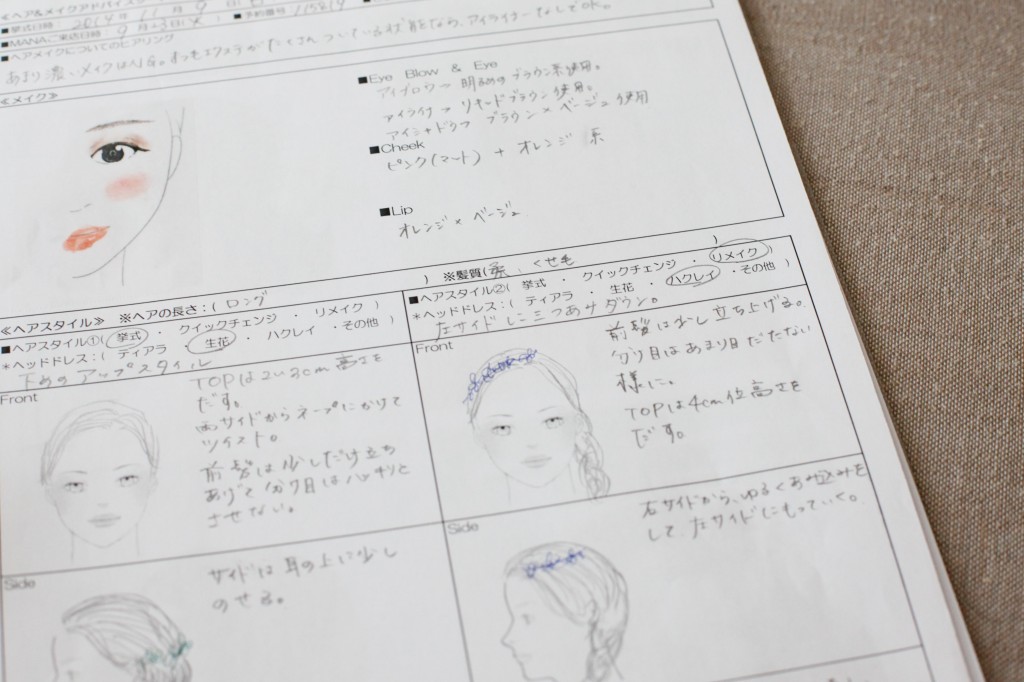 ≪ヘア&メイクアドバイス
■挙式日時 2014年 11月 9日
■予約番号 115819
■MANAご来店日時 9月 23日
■ヘアメイクについてのヒアリング
あまり濃いメイクはNG。まつ毛エクステがたくさんついている状態なら、アイライナーなしでOK。
≪メイク≫
■Eye Blow & Eye
アイブロウ→明るめのブラウン系使用。
アイライナー→リキッドブラウン使用。
アイシャドウ→ブラウン×ベージュ使用
■Cheek
ピンク(マット)+オレンジ系
■Lip
オレンジ×ベージュ
≪ヘアスタイル≫ ※ヘアの長さ:( ロング ) ※髪質( 柔、くせ毛 )
■ヘアスタイル①( 挙式 ・ クイックチェンジ ・ リメイク )
*ヘッドドレス:( ティアラ ・ 生花 ・ ハクレイ ・その他 )
下めのアップスタイル
Front
TOPは2〜3cm高さを
だす。
両サイドからネープにかけて
ツイスト。
前髪は少しだけ立ち
あげて分け目はハッキリと
させない。
Side
サイドは耳の上に少し
のせる。
■ヘアスタイル②( 挙式 ・ クイックチェンジ ・ リメイク )
*ヘッドドレス:( ティアラ ・ 生花 ・ ハクレイ ・その他 )
左サイドに三つあみダウン。
Front
前髪は少し立ち上げる。
分け目はあまり目だたない
様に。
TOPは4cm位高さを
だす。
Side
右サイドから、ゆるくあみ込みを
して左サイドにもっていく。